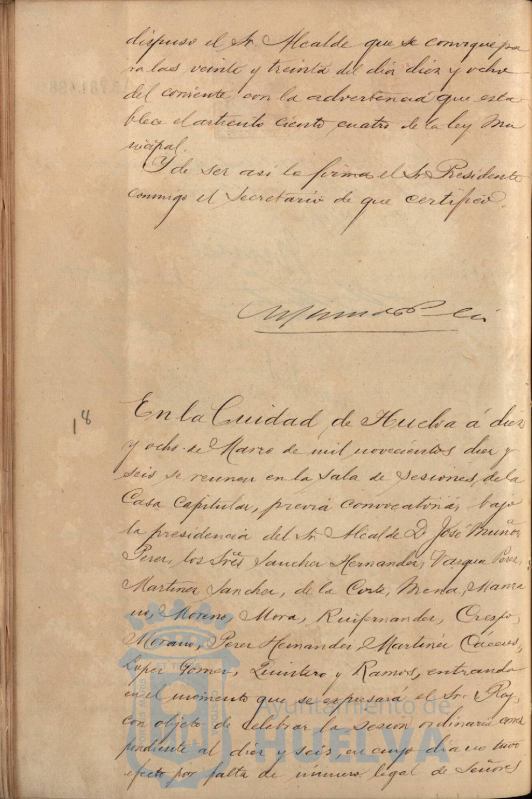 dispuso el Sr. Alcalde que se convoque pa
ra las veinte y treinta del dia diez y ocho
del corriente con la advertencia que esta
blece el articulo ciento cuatro de la ley Mu
nicipal.
Y de ser asi lo firma el Sr. Presidente
conmigo el Secretario de que certifico.
18
En la Ciudad de Huelva á diez
y ocho de Marzo de mil novecientos diez y
seis se reunen en la Sala de Sesiones, de la
Casa Capitular, previa convocatoria, bajo
la presidencia del Sr. Alcalde D. José Muñoz
Perez, los Sres Sanchez Hernandez, Vazquez Perez,
Martinez Sanchez, de la Corte, Mena, Manza
no, Moreno, Mora, Ruifernandez, Crespo,
Morano, Perez Hernandez, Martinez Cáceres,
Lopez Gomez, Quintero y Ramos, entrando
en el momento que se expresará el Sr. Rey,
con objeto de celebrar la sesion ordinaria corres
pondiente al diez y seis, en cuyo dia no tuvo
efecto por falta de número legal de Señores
Ayuntamiento de
HUELVA